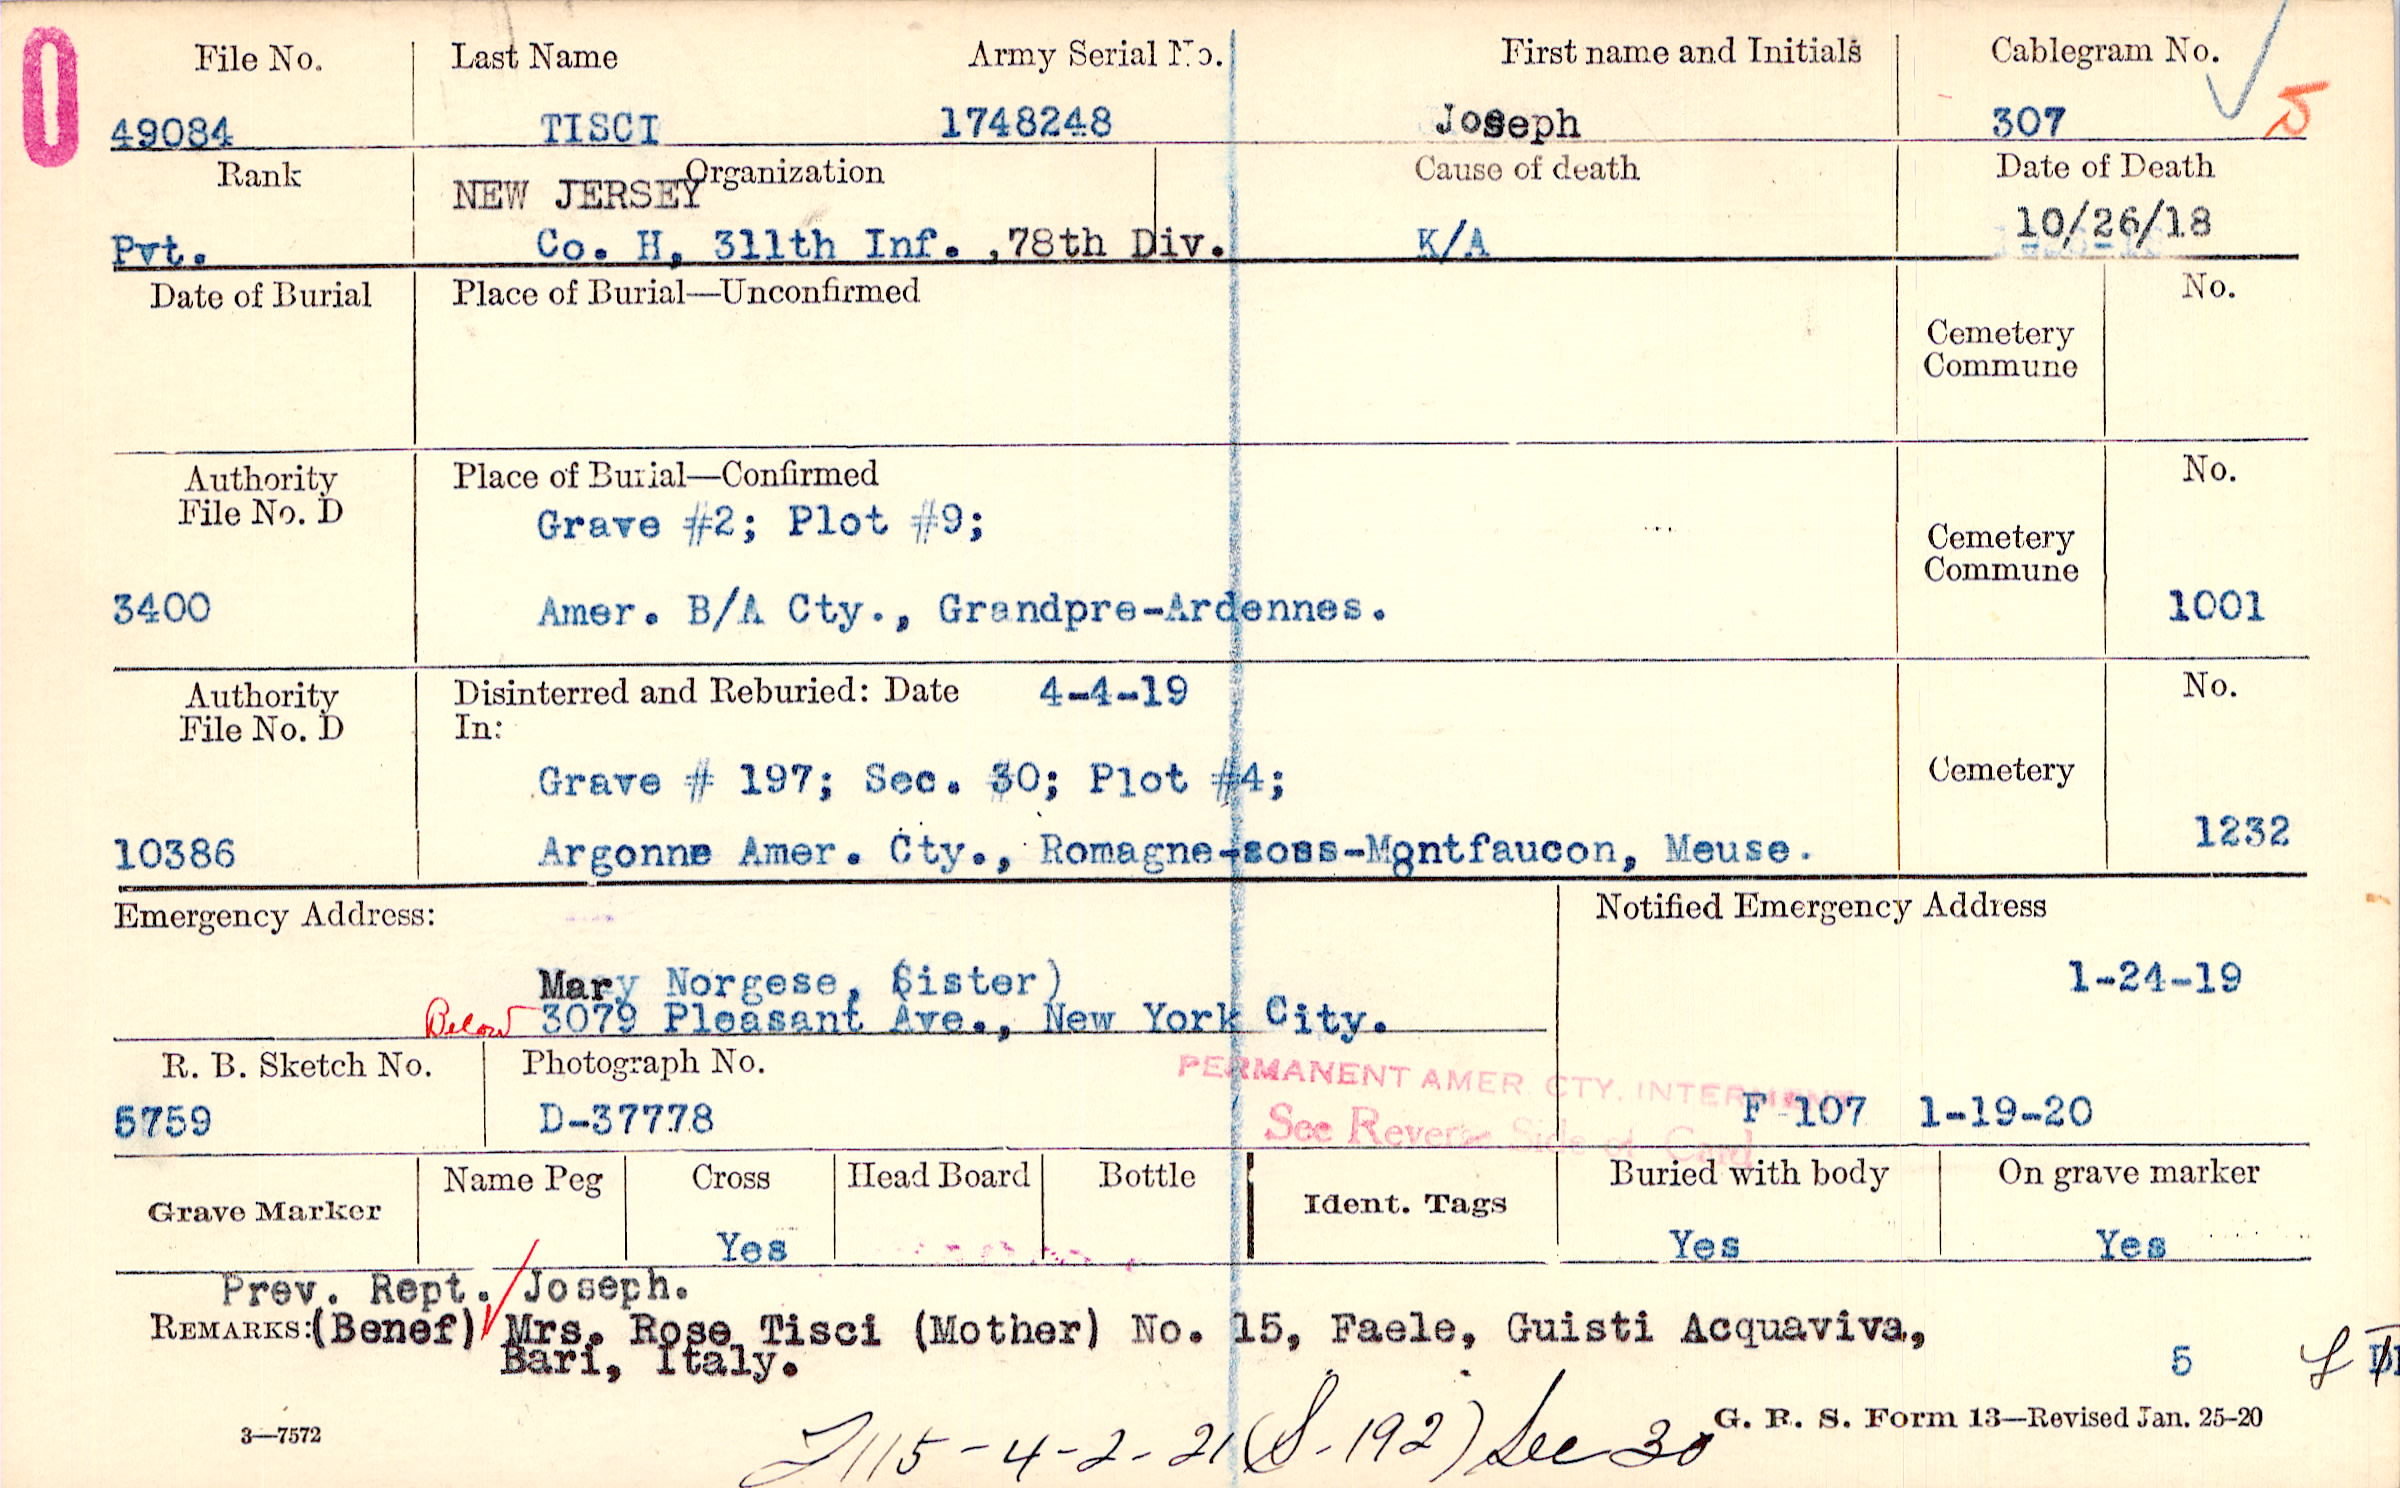 0
File No. Last Name Army Serial No. First name and Initials Cablegram No.
49084 TISCI 1748248 Joseph 307 5
Rank Organization Cause of death Date of Death
NEW JERSEY
Pvt. Co. H, 311th Inf. ,78th Div. K/A 10/26/18
Date of Burial Place of Burial—Unconfirmed No.
Cemetery
Commune
Authority Place of Burial—Confirmed No.
File No. D
Grave #2; Plot #9;
Cemetery
Commune
3400 Amer. B/A Cty., Grandpre-Ardennes. 1001
Authority Disinterred and Reburied: Date 4-4-19 No.
File No. D In:
Grave # 197; Sec. 30; Plot #4; Cemetery
10386 Argonne Amer. Cty., Romagne-soss-Montfaucon, Meuse. 1232
Emergency Address: Notified Emergency Address
Mary Norgese, (Sister) 1-24-19
Below 3079 Pleasant Ave., New York City.
R. B. Sketch No. Photograph No. PERMANENT AMER. CTY. INTERMENT
5759 D-37778 See Reverse Side of Card F-107 1-19-20
Grave Marker Name Peg Cross Head Board Bottle Ident. Tags Buried with body On grave marker
Yes Yes Yes
Prev. Rept. Joseph.
REMARKS: (Benef) Mrs. Rose Tisci (Mother) No. 15, Faele, Guisti Acquaviva,
Bari, Italy. 5
3—7572 G. R. S. Form 13—Revised Jan. 25-20
115-4-2-21 (S-192) Sec 30